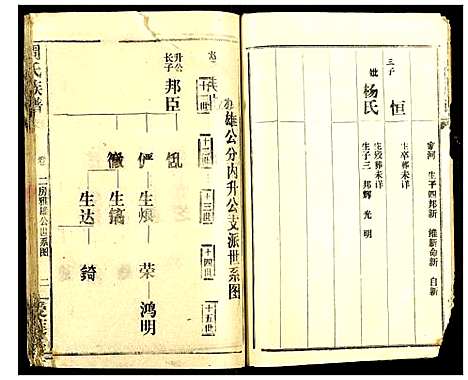 三子
恒
妣
杨氏
生卒葬未详
生殁葬未详
生子三 邦辉 光明
生子四邦新 维新命新 自新
雄公分内升公支派世系图
十二世
十三世
十四世
十五世
升公长子
邦臣
俨
生焕
荣
鸿明
徽
生镐
生达
锜
周氏族谱
卷二
二房雅雄公世系图
二
爱莲